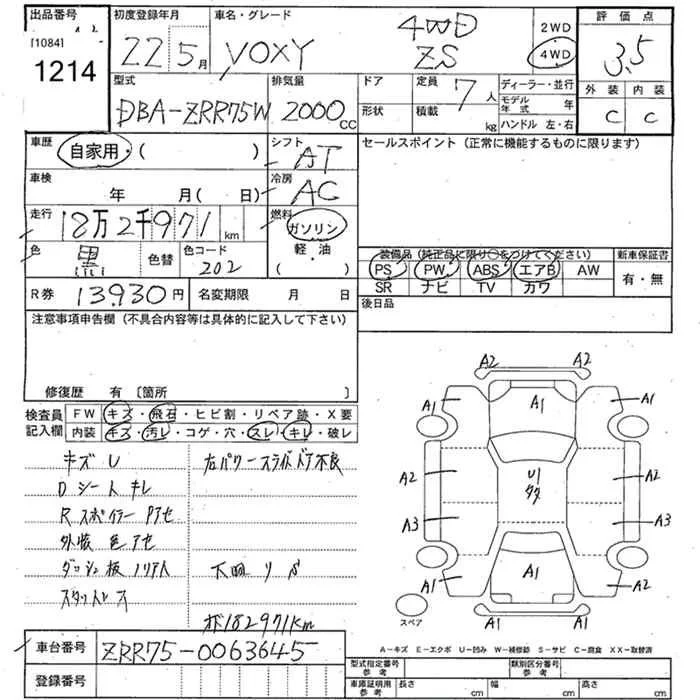 出品番号
[1084]
1214
初度登録年月
22 5月
車名・グレード
VOXY 4WD ZS
2WD
4WD
評価点
3.5
外装 内装
C C
型式
DBA-ZRR75W
排気量
2000 CC
ドア
形状
定員 7人
積載 kg
ディーラー・並行
モデル年式 年
ハンドル 左・右
車歴
自家用・( )
シフト
AT
セールスポイント(正常に機能するものに限ります)
車検
年 月( 日)
冷房
AC
走行
18万2千971 km
燃料
ガソリン
軽・油
( )
色
黒
色替
色コード
202
装備品(純正品に限り○をつけてください)
新車保証書
PS PW ABS エアB AW
有・無
SR ナビ TV カワ
R券 13930円
名変期限 月 日
後日品
注意事項申告欄(不具合内容等は具体的に記入して下さい)
修復歴 有 〔箇所 〕
検査員記入欄
FW キズ・飛石・ヒビ割・リペア跡・X要
内装 キズ・汚レ・コゲ・穴・スレ・キレ・破レ
キズ U
右パワースライドドア不良
Dシート キレ
Rスポイラー アセ
外装 色アセ
ダッシュ板 ノリアト
下回 サビ
スタットレス
メーター182971km
車台番号
ZRR75-0063645
登録番号
A2 A2
A1 A1 A1
A2 U1 多 A2
A3 A3
A1 A1 A2
A1 A1
スペア
A-キズ E-エクボ U-凹み W-補修跡 S-サビ C-腐食 XX-取替済
型式指定番号 参考
類別区分番号 参考
車庫証明用 参考
長さ cm
幅 cm
高さ cm